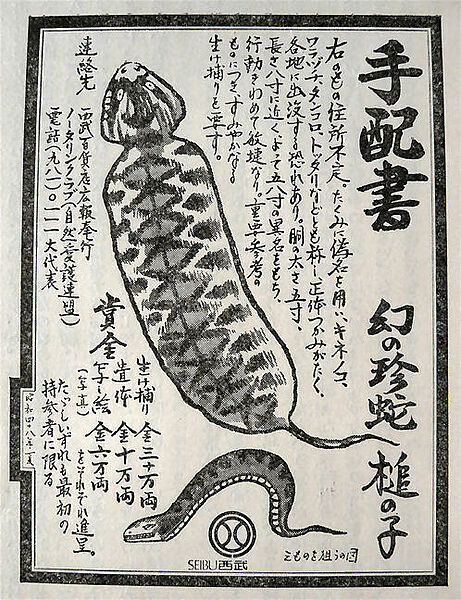 手配書
幻の珍蛇 槌の子
右のもの住所不定。たくみに偽名を用い、キネノコ、
ワラヅチ、タンコロ、トックリなどとも称し正体つかみがたく、
各地に出没する恐れあり。胴の太さ五寸、
長さ八寸に近く、よって五八寸の異名をもち、
行動きわめて敏捷なり。重要参考の
ものにつき、すみやかなる
生け捕りを要す。
連絡先
西武百貨店広報奉行
ノータリンクラブ(自然愛護連盟)
電話(九八一)〇一一一大代表
賞金
生け捕り 金三十万両
遺体 金十万両
写し絵 金六万両
(写真) をそれぞれ進呈。
ただし、いずれも最初の
持参者に限る
えものを狙うの図
SEIBU西武